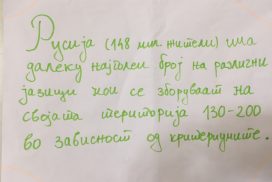 Русија (148 мил. жители) има
далеку најголем број на различни
јазици кои се зборуваат на
својата територија 130-200
во зависност од критериумите.